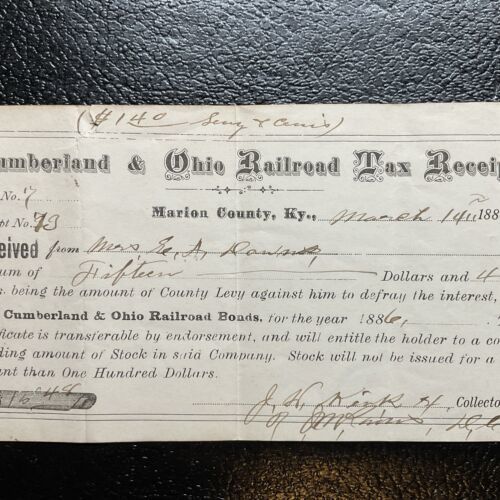 ($1.40
umberland & Ohio Railroad Tax Receip
No. 7
Marion County, Ky., March 14 188
pt No. 73
eived from Mrs E. A.
um of Fifteen Dollars and 4
s being the amount of County Levy against him to defray the interest,
Cumberland & Ohio Railroad Bonds, for the year 1886,
ficate is transferable by endorsement, and will entitle the holder to a co
ding amount of Stock in said Company. Stock will not be issued for a
unt than One Hundred Dollars.
Collecto